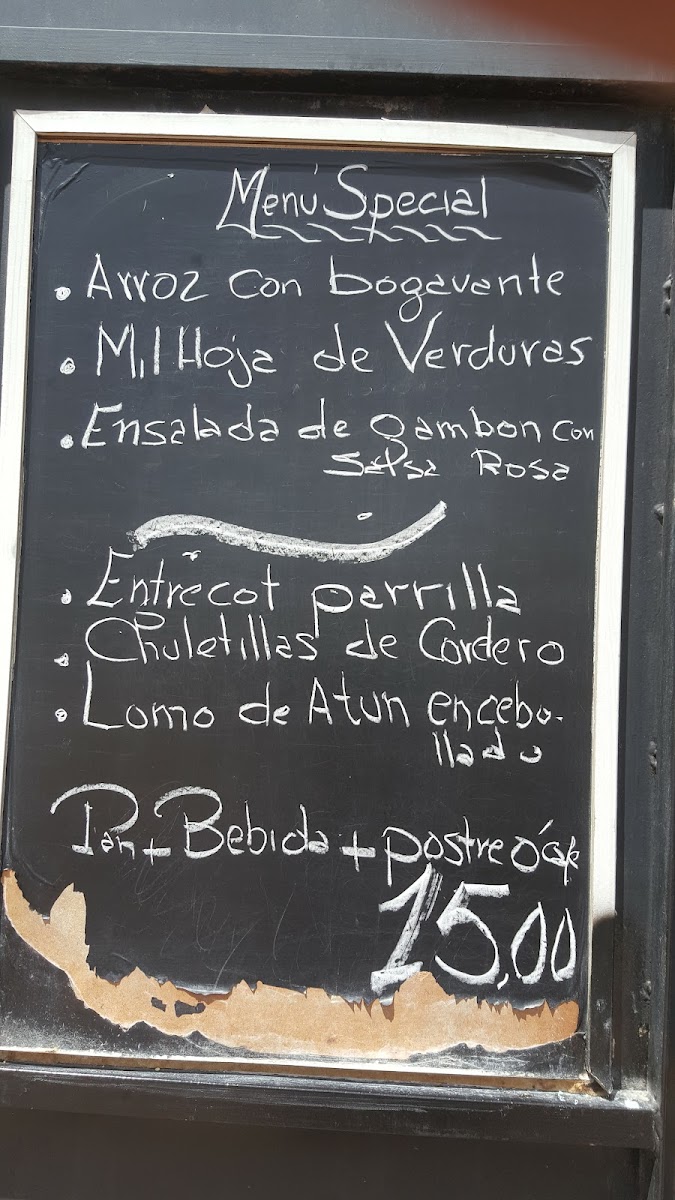 Menú Special
• Arroz con bogavante
• Mil Hoja de Verduras
• Ensalada de gambon con
Salsa Rosa
• Entrecot parrilla
• Chuletillas de Cordero
• Lomo de Atun encebo-
llado
Pan + Bebida + postre ó
15,00